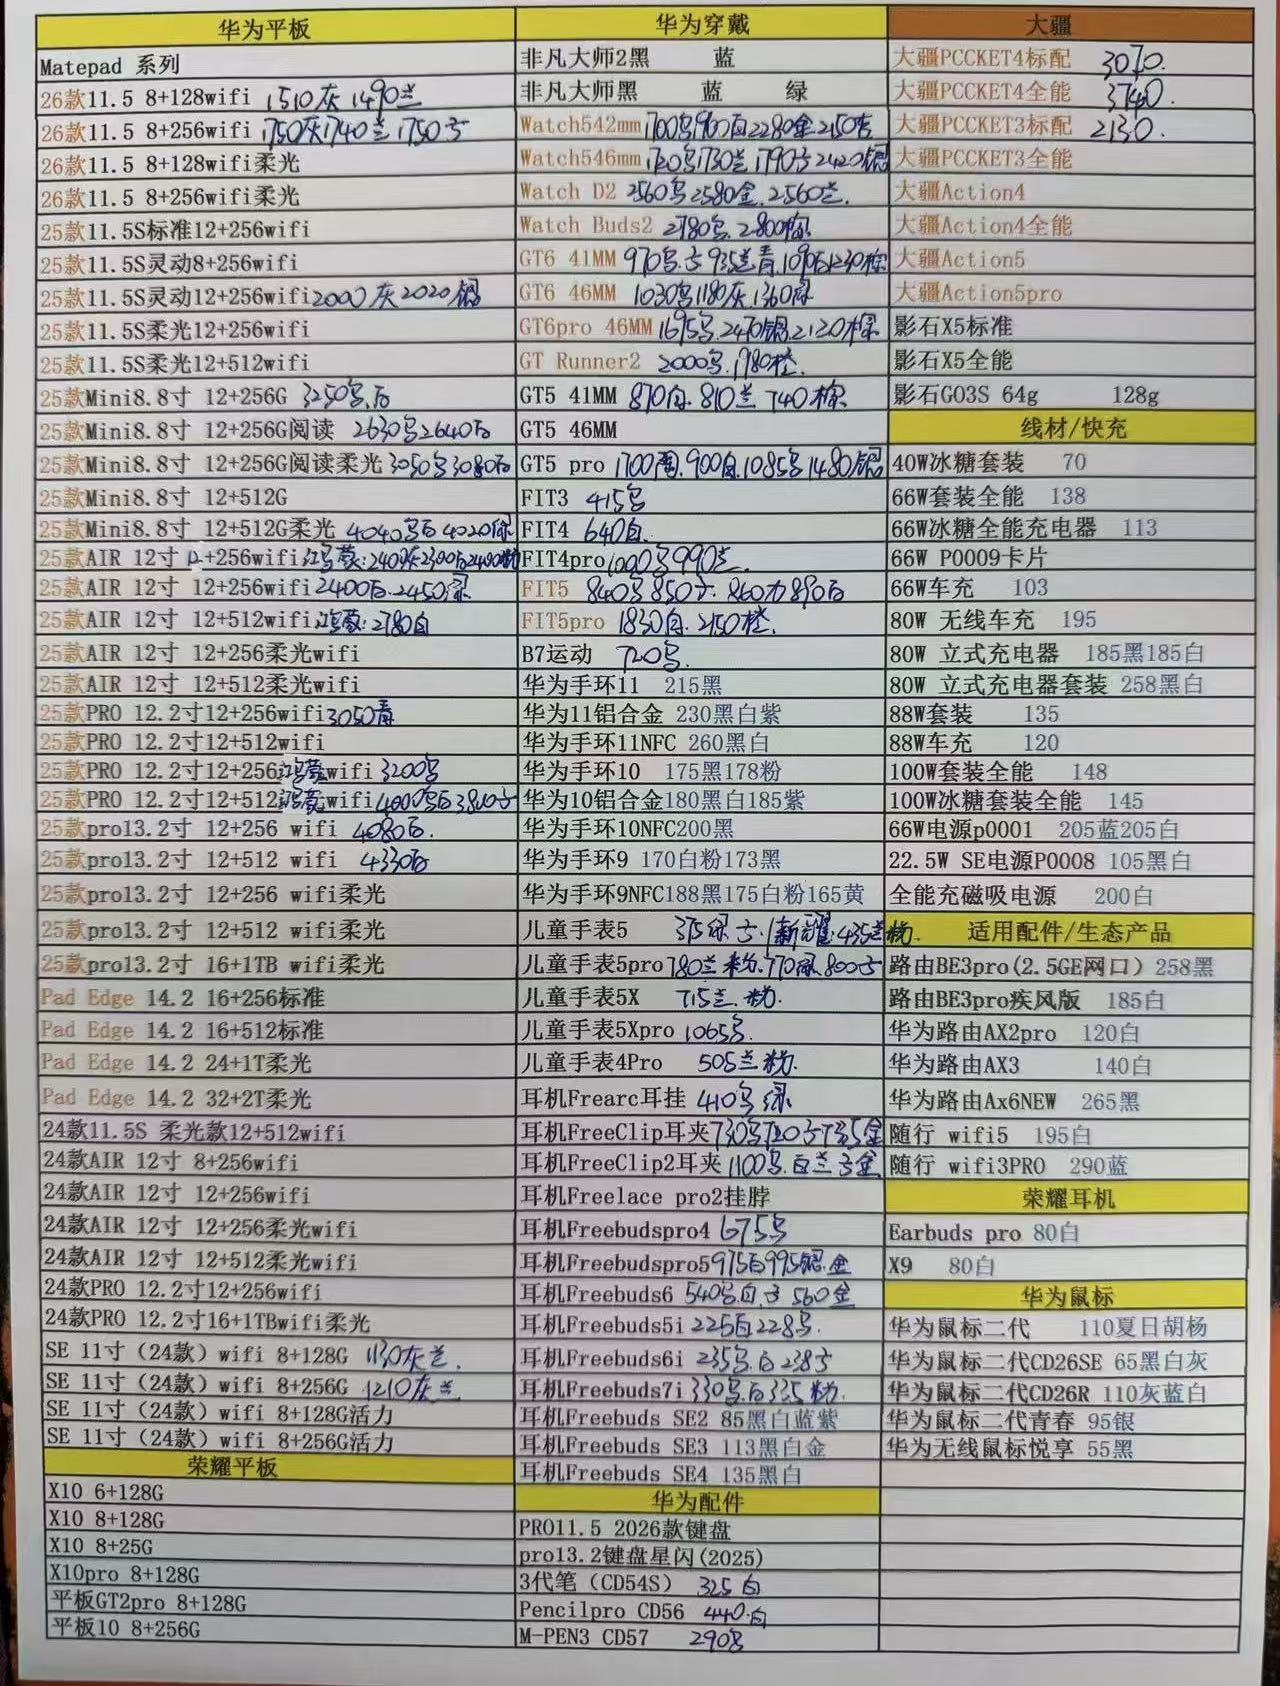 华为平板
Matepad 系列
26款11.5 8+128wifi 1510灰1490兰
26款11.5 8+256wifi 1750灰1740兰1750
26款11.5 8+128wifi柔光
26款11.5 8+256wifi柔光
25款11.5S标准12+256wifi
25款11.5S灵动8+256wifi
25款11.5S灵动12+256wifi2000灰2020
25款11.5S柔光12+256wifi
25款11.5S柔光12+512wifi
25款Mini8.8寸 12+256G 3250
25款Mini8.8寸 12+256G阅读 2630 2640白
25款Mini8.8寸 12+256G阅读柔光3050 3080白
25款Mini8.8寸 12+512G
25款Mini8.8寸 12+512G柔光 4040 4020绿
25款AIR 12寸 12+256wifi鸿蒙:2400
25款AIR 12寸 12+256wifi2400白.2450绿
25款AIR 12寸 12+512wifi鸿蒙:2780白
25款AIR 12寸 12+256柔光wifi
25款AIR 12寸 12+512柔光wifi
25款PRO 12.2寸12+256wifi3050青
25款PRO 12.2寸12+512wifi
25款PRO 12.2寸12+256鸿蒙wifi 3200
25款PRO 12.2寸12+512鸿蒙wifi4000
25款pro13.2寸 12+256 wifi 4080白.
25款pro13.2寸 12+512 wifi 4330白
25款pro13.2寸 12+256 wifi柔光
25款pro13.2寸 12+512 wifi柔光
25款pro13.2寸 16+1TB wifi柔光
Pad Edge 14.2 16+256标准
Pad Edge 14.2 16+512标准
Pad Edge 14.2 24+1T柔光
Pad Edge 14.2 32+2T柔光
24款11.5S 柔光款12+512wifi
24款AIR 12寸 8+256wifi
24款AIR 12寸 12+256wifi
24款AIR 12寸 12+256柔光wifi
24款AIR 12寸 12+512柔光wifi
24款PRO 12.2寸12+256wifi
24款PRO 12.2寸16+1TBwifi柔光
SE 11寸（24款）wifi 8+128G 1130灰兰.
SE 11寸（24款）wifi 8+256G 1210灰兰
SE 11寸（24款）wifi 8+128G活力
SE 11寸（24款）wifi 8+256G活力
荣耀平板
X10 6+128G
X10 8+128G
X10 8+25G
X10pro 8+128G
平板GT2pro 8+128G
平板10 8+256G
华为穿戴
非凡大师2黑 蓝
非凡大师黑 蓝 绿
Watch542mm1700 1960白2280金2150
Watch546mm1720 1730兰 1790 2420
Watch D2 2560 2580金.2560兰.
Watch Buds2 2780 2800棕
GT6 41MM 970 935兰青.1090白1230棕
GT6 46MM 1030 1180灰1360绿
GT6pro 46MM 1695 2470 2120棕
GT Runner2 2000 1980橙.
GT5 41MM 870白.810兰 740棕
GT5 46MM
GT5 pro 1700 900白.1085 1480
FIT3 415
FIT4 640白.
FIT4pro1000 990兰
FIT5 840 850 860 890白
FIT5pro 1830白.2150橙.
B7运动 720
华为手环11 215黑
华为11铝合金 230黑白紫
华为手环11NFC 260黑白
华为手环10 175黑178粉
华为10铝合金180黑白185紫
华为手环10NFC200黑
华为手环9 170白粉173黑
华为手环9NFC188黑175白粉165黄
儿童手表5 375绿 新耀:435兰粉.
儿童手表5pro780兰粉.770绿.800
儿童手表5X 715兰.粉.
儿童手表5Xpro 1065
儿童手表4Pro 505兰粉.
耳机Frearc耳挂 410 绿
耳机FreeClip耳夹730 720
耳机FreeClip2耳夹1100 白兰 金
耳机Freelace pro2挂脖
耳机Freebudspro4 675
耳机Freebudspro5975白995 金
耳机Freebuds6 540 白 560金
耳机Freebuds5i 225白228
耳机Freebuds6i 235 白238
耳机Freebuds7i 330 白335粉.
耳机Freebuds SE2 85黑白蓝紫
耳机Freebuds SE3 113黑白金
耳机Freebuds SE4 135黑白
华为配件
PRO11.5 2026款键盘
pro13.2键盘星闪(2025)
3代笔（CD54S） 325白
Pencilpro CD56 440.白
M-PEN3 CD57 290
大疆
大疆PCCKET4标配 3070.
大疆PCCKET4全能 3740.
大疆PCCKET3标配 2130.
大疆PCCKET3全能
大疆Action4
大疆Action4全能
大疆Action5
大疆Action5pro
影石X5标准
影石X5全能
影石GO3S 64g 128g
线材/快充
40W冰糖套装 70
66W套装全能 138
66W冰糖全能充电器 113
66W P0009卡片
66W车充 103
80W 无线车充 195
80W 立式充电器 185黑185白
80W 立式充电器套装 258黑白
88W套装 135
88W车充 120
100W套装全能 148
100W冰糖套装全能 145
66W电源p0001 205蓝205白
22.5W SE电源P0008 105黑白
全能充磁吸电源 200白
适用配件/生态产品
路由BE3pro(2.5GE网口）258黑
路由BE3pro疾风版 185白
华为路由AX2pro 120白
华为路由AX3 140白
华为路由Ax6NEW 265黑
随行 wifi5 195白
随行 wifi3PRO 290蓝
荣耀耳机
Earbuds pro 80白
X9 80白
华为鼠标
华为鼠标二代 110夏日胡杨
华为鼠标二代CD26SE 65黑白灰
华为鼠标二代CD26R 110灰蓝白
华为鼠标二代青春 95银
华为无线鼠标悦享 55黑